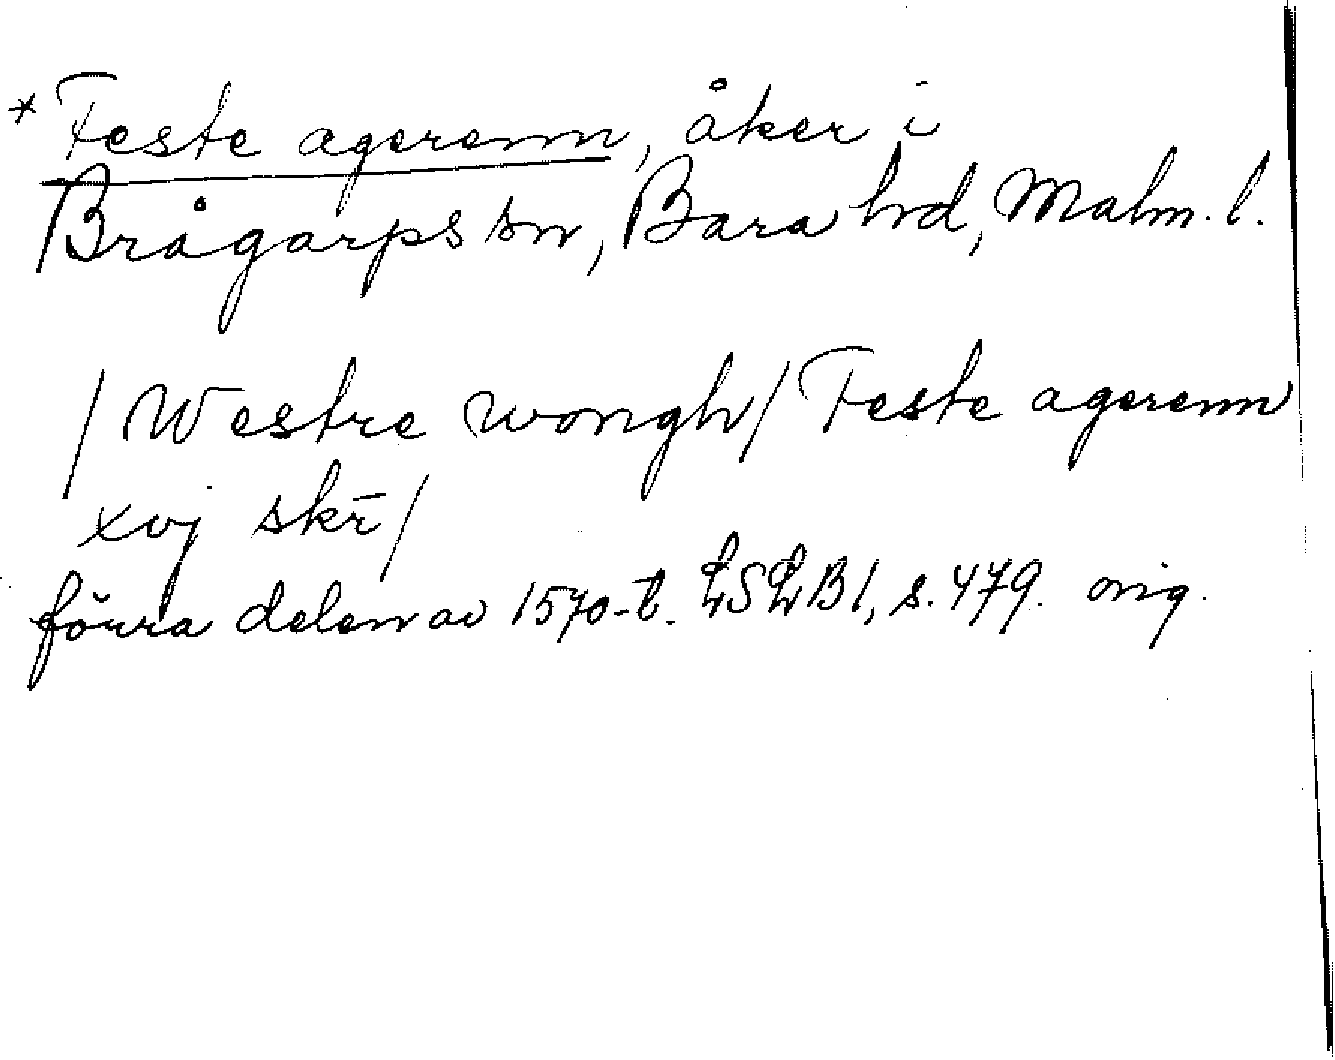 * Feste agerenn, åker i
Brågarps sn, Bara hd, Malm. l.
/Westre wongh/ Feste agerenn
xvj skr̄/
förra delen av 1570-t. LSLB1, s. 479. orig.